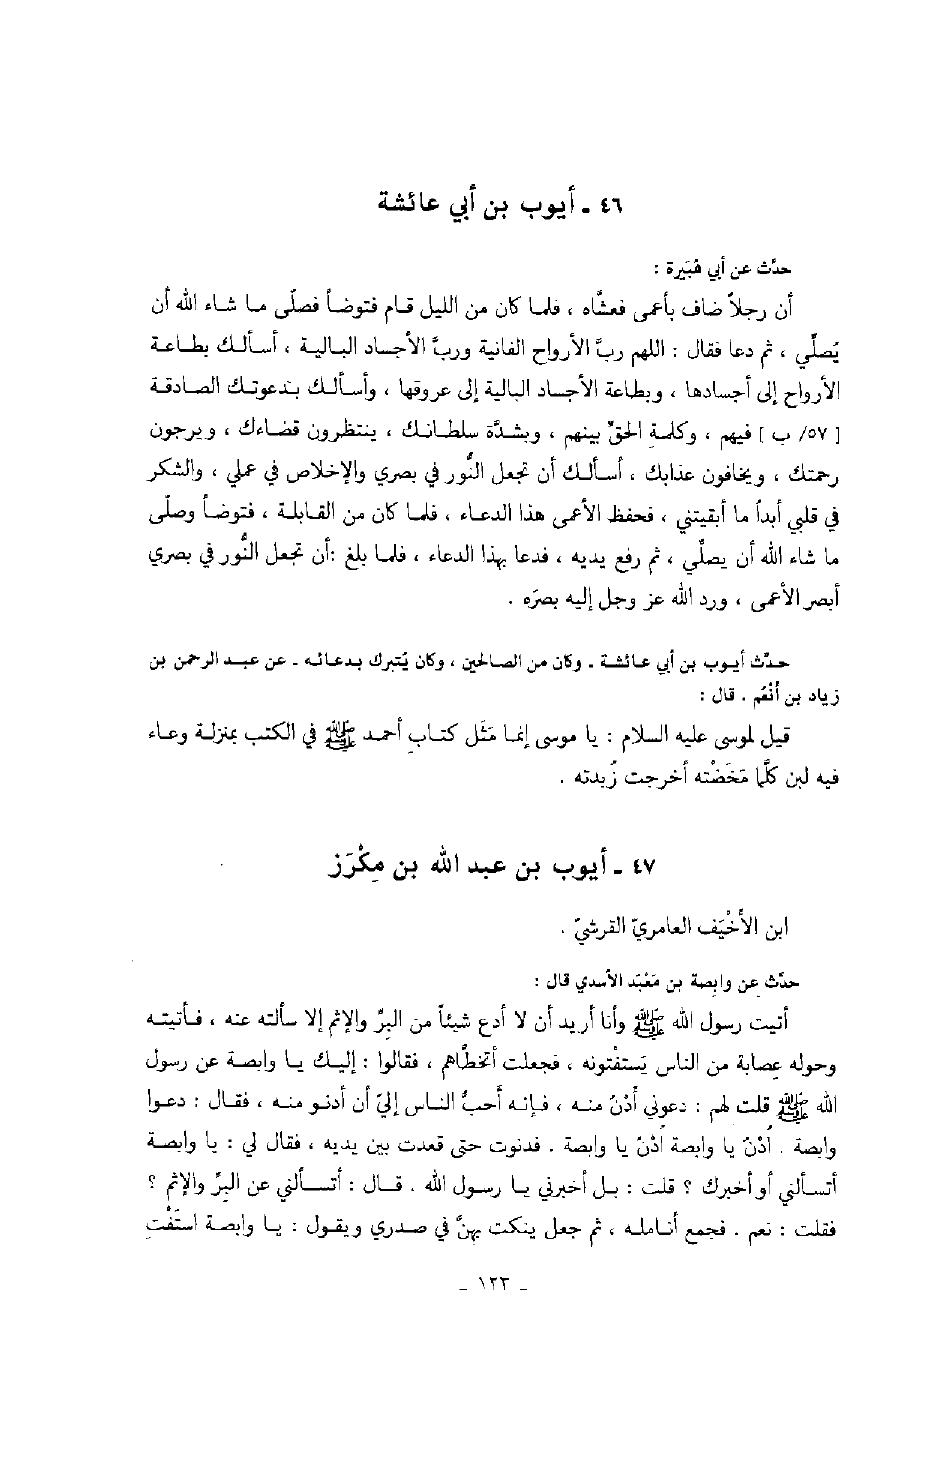 ٤٦ ـ أيوب بن أبي عائشة
حدّث عن أبي هُبَيرة :
أن رجلاً ضاف بأعمى فعشَّاه ، فلما كان من الليل قام فتوضأ فصلّى ما شاء الله أن
يُصلّي ، ثم دعا فقال : اللهم ربَّ الأرواح الفانية وربَّ الأجساد البالية ، أسألك بطاعة
الأرواح إلى أجسادها ، وبطاعة الأجساد البالية إلى عروقها ، وأسألك بدعوتك الصادقة
[ ٥٧/ ب ] فيهم ، وكلمةِ الحقِّ بينهم ، وبشدَّة سلطانك ، ينتظرون قضاءك ، ويرجون
رحمتك ، ويخافون عذابك ، أسألك أن تجعل النُّور في بصري والإخلاص في عملي ، والشكر
في قلبي أبداً ما أبقيتني ، فحفظ الأعمى هذا الدعاء ، فلما كان من القابلة ، فتوضأ وصلّى
ما شاء الله أن يصلّي ، ثم رفع يديه ، فدعا بهذا الدعاء ، فلما بلغ :أن تجعل النُّور في بصري
أبصر الأعمى ، ورد الله عز وجل إليه بصرَه .
حدّث أيوب بن أبي عائشة ـ وكان من الصالحين ، وكان يُتبرك بدعائه ـ عن عبد الرحمن بن
زياد بن أَنْعُم . قال :
قيل لموسى عليه السلام : يا موسى إنما مَثَل كتابِ أحمد ﷺ في الكتب بمنزلة وعاء
فيه لبن كلَّما مَخَضْته أخرجت زُبدته .
٤٧ ـ أيوب بن عبد الله بن مِكْرَز
ابن الأَخْيَف العامريّ القرشيّ .
حدّث عن وابِصة بن مَعْبَد الأسدي قال :
أتيت رسول الله ﷺ وأنا أريد أن لا أدع شيئاً من البِرِّ والإثم إلا سألته عنه ، فأتيته
وحوله عِصابة من الناس يَستفْتونه ، فجعلت أتخطَّاهم ، فقالوا : إليك يا وابصة عن رسول
الله ﷺ قلت لهم : دعوني أَدْنُ منه ، فإنه أحبُّ الناس إليّ أن أدنو منه ، فقال : دعوا
وابصة . اُدْنُ يا وابصة اُدْنُ يا وابصة . فدنوت حتى قعدت بين يديه ، فقال لي : يا وابصة
أتسألني أو أخبرك ؟ قلت : بل أخبرني يا رسول الله . قال : أتسألني عن البِرِّ والإثم ؟
فقلت : نعم . فجمع أنامله ، ثم جعل ينكت بهنَّ في صدري ويقول : يا وابصة استَفْتِ
ـ ١٢٣ ـ